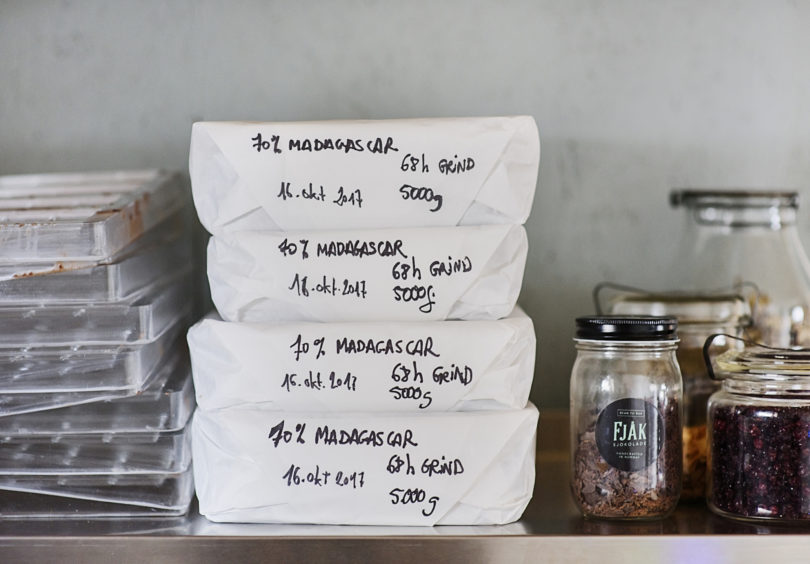 70% MADAGASCAR
68h GRIND
16.okt 2017
5000g
70% MADAGASCAR
68h GRIND
16.okt.2017
5000g.
70% MADAGASCAR
68h GRIND
16.okt.2017
5000g
70% MADAGASCAR
68h GRIND
16.okt 2017
5000g
BEAN TO BAR
FJÅK
SJOKOLADE
HANDCRAFTED
IN NORWAY